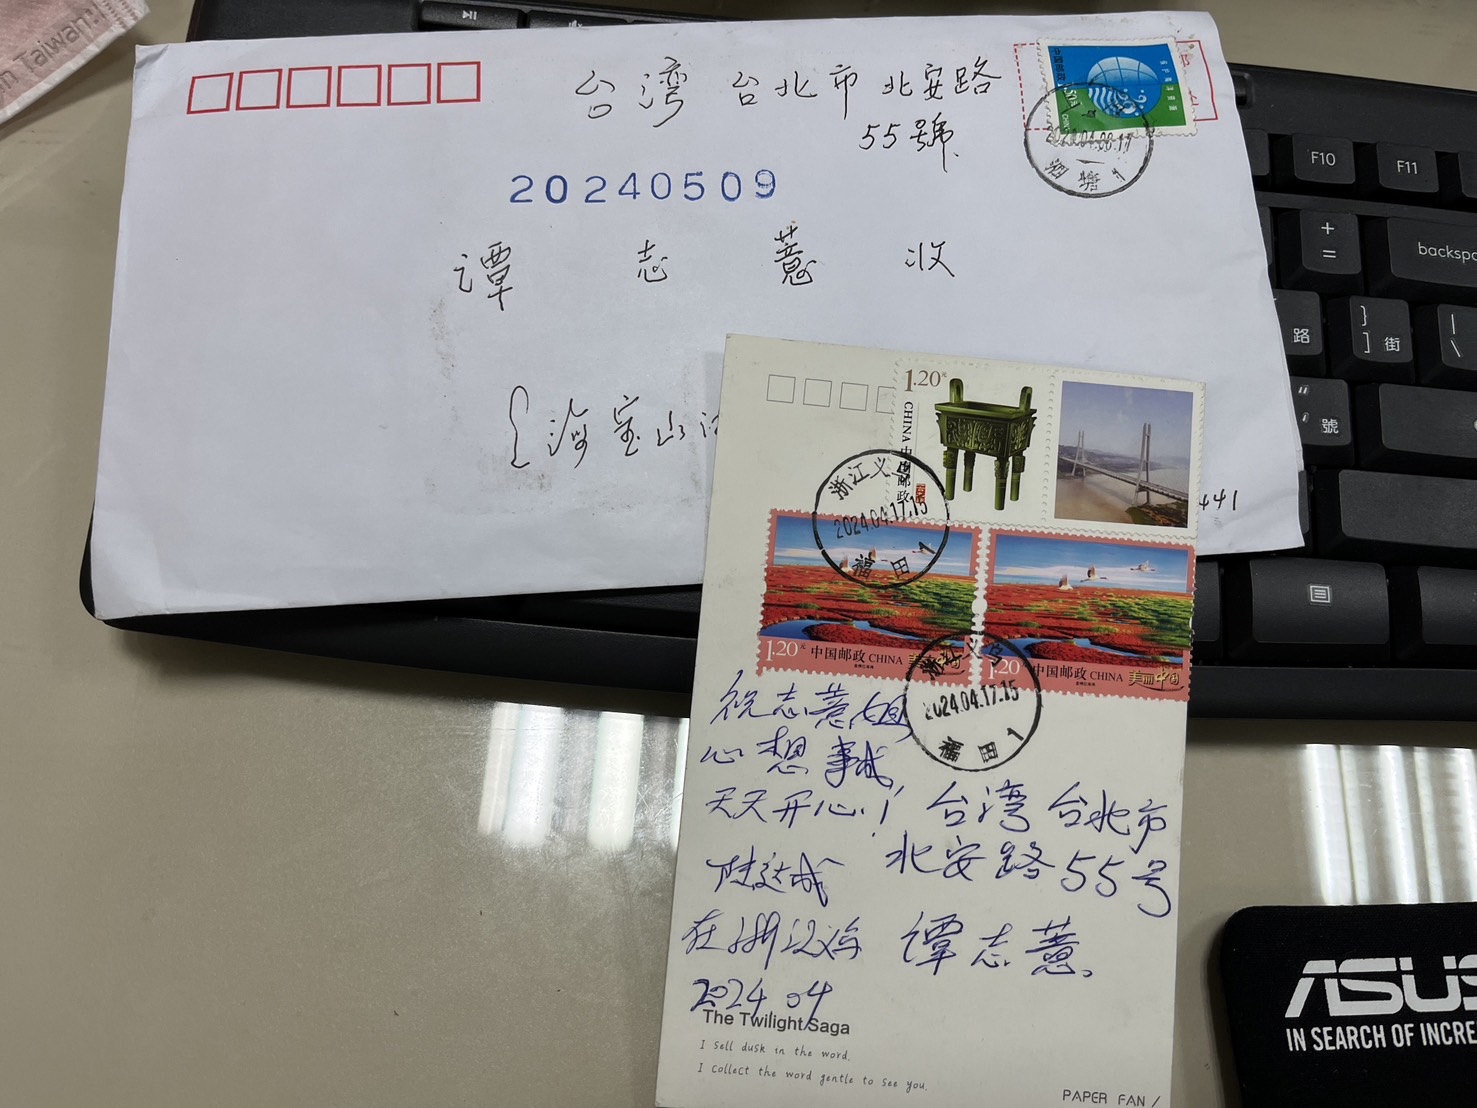 Taiwan
台湾 台北市 北安路
55號
20240509
谭 志 薏 收
中国邮政
CHINA
441
1.20元
CHINA 中国邮政
浙江义乌
2024.04.17.15
福田 1
1.20元 中国邮政 CHINA
1.20 中国邮政 CHINA 美丽中国
浙江义乌
2024.04.17.15
福田 1
祝志薏姐
心想事成,
天天开心!
台湾 台北市
北安路55号
谭志薏。
在浙江义乌
2024.04
The Twilight Saga
I sell dusk in the word.
I collect the word gentle to see you.
PAPER FAN /
F10
F11
+
=
backsp
路
}
] 街
|
\
"
' 號
ASUS
IN SEARCH OF INCRE